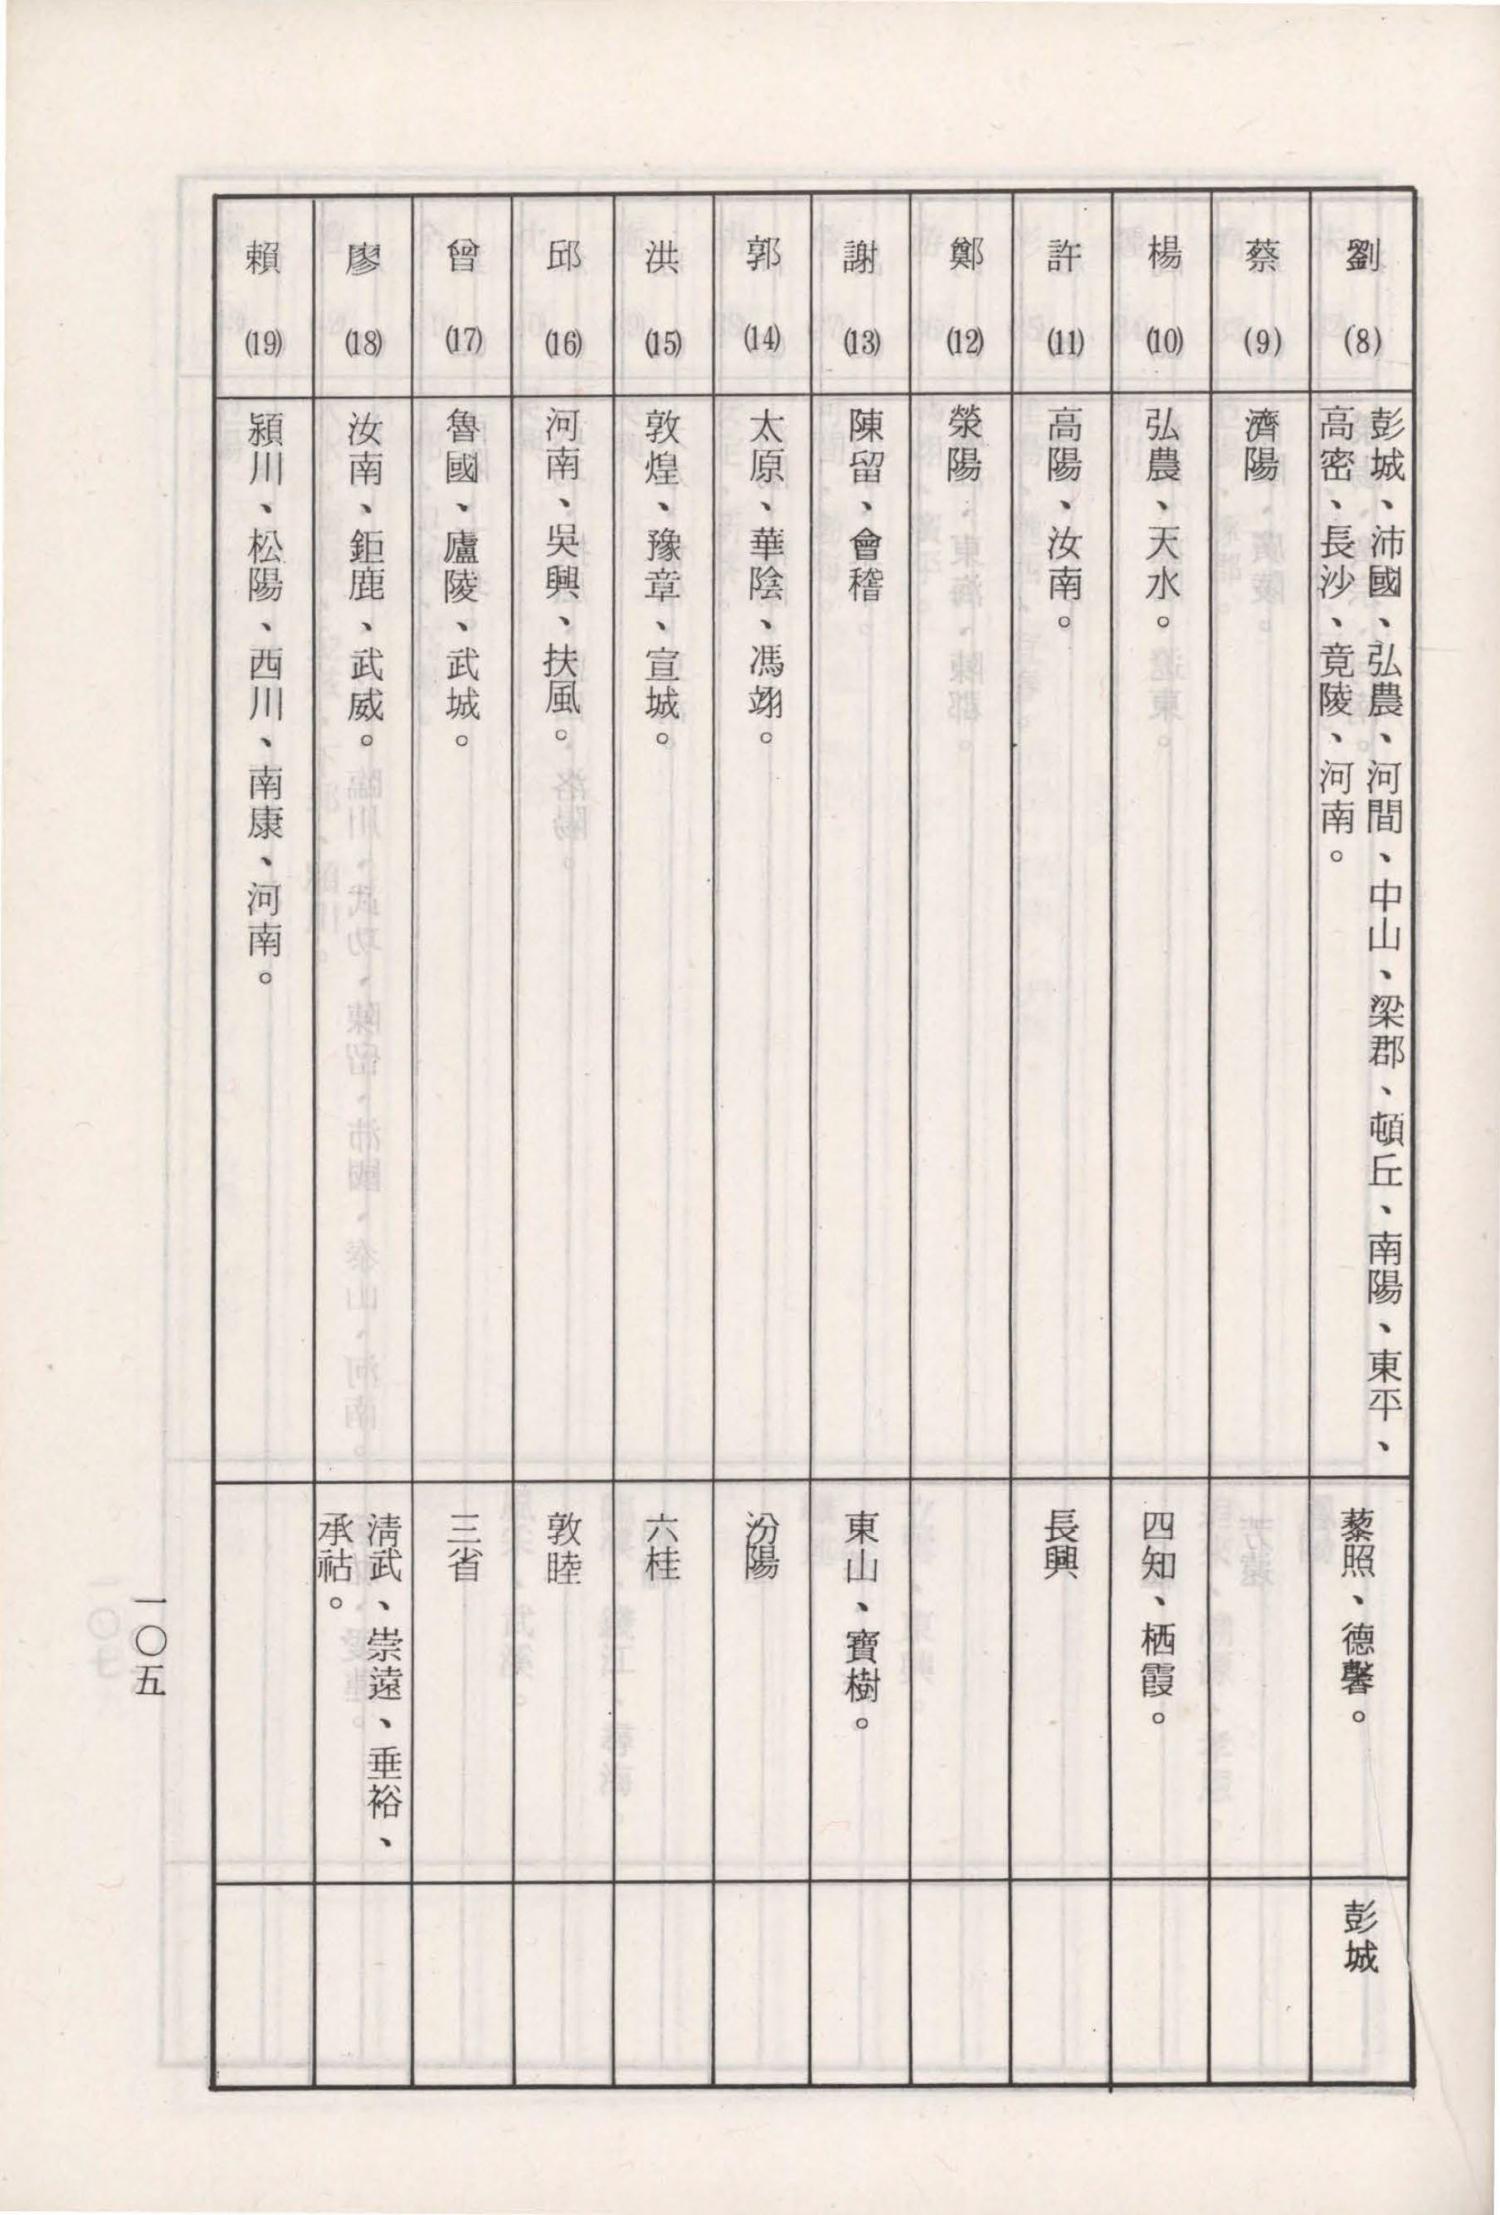 劉 (8)
彭城、沛國、弘農、河間、中山、梁郡、頓丘、南陽、東平、
高密、長沙、竟陵、河南。
藜照、德馨。
彭城
蔡 (9)
濟陽
楊 (10)
弘農、天水。
四知、栖霞。
許 (11)
高陽、汝南。
長興
鄭 (12)
滎陽
謝 (13)
陳留、會稽
東山、寶樹。
郭 (14)
太原、華陰、馮翊。
汾陽
洪 (15)
敦煌、豫章、宣城。
六桂
邱 (16)
河南、吳興、扶風。
敦睦
曾 (17)
魯國、廬陵、武城。
三省
廖 (18)
汝南、鉅鹿、武威。
淸武、崇遠、垂裕、
承祜。
賴 (19)
潁川、松陽、西川、南康、河南。
一〇五